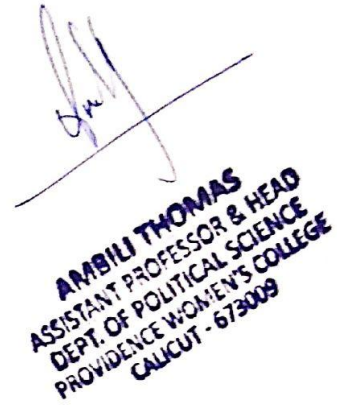 AMBILI THOMAS
ASSISTANT PROFESSOR & HEAD
DEPT. OF POLITICAL SCIENCE
PROVIDENCE WOMEN'S COLLEGE
CALICUT - 673009